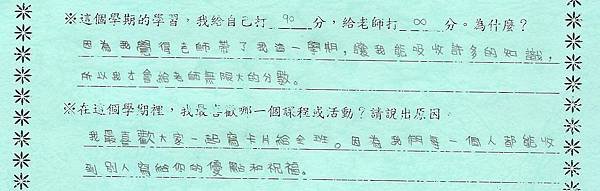 ※這個學期的學習，我給自己打 90 分，給老師打 ∞ 分。為什麼？
因為我覺得老師帶了我這一學期，讓我能吸收許多的知識，
所以我才會給老師無限大的分數。
※在這個學期裡，我最喜歡哪一個課程或活動？請說出原因。
我最喜歡大家一起寫卡片給全班。因為我們每一個人都能收
到別人寫給你的優點和祝福。